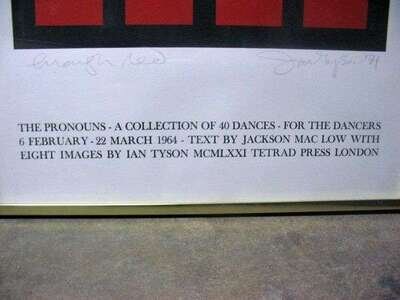 enough red Ian Tyson '71
THE PRONOUNS - A COLLECTION OF 40 DANCES - FOR THE DANCERS
6 FEBRUARY - 22 MARCH 1964 - TEXT BY JACKSON MAC LOW WITH
EIGHT IMAGES BY IAN TYSON MCMLXXI TETRAD PRESS LONDON